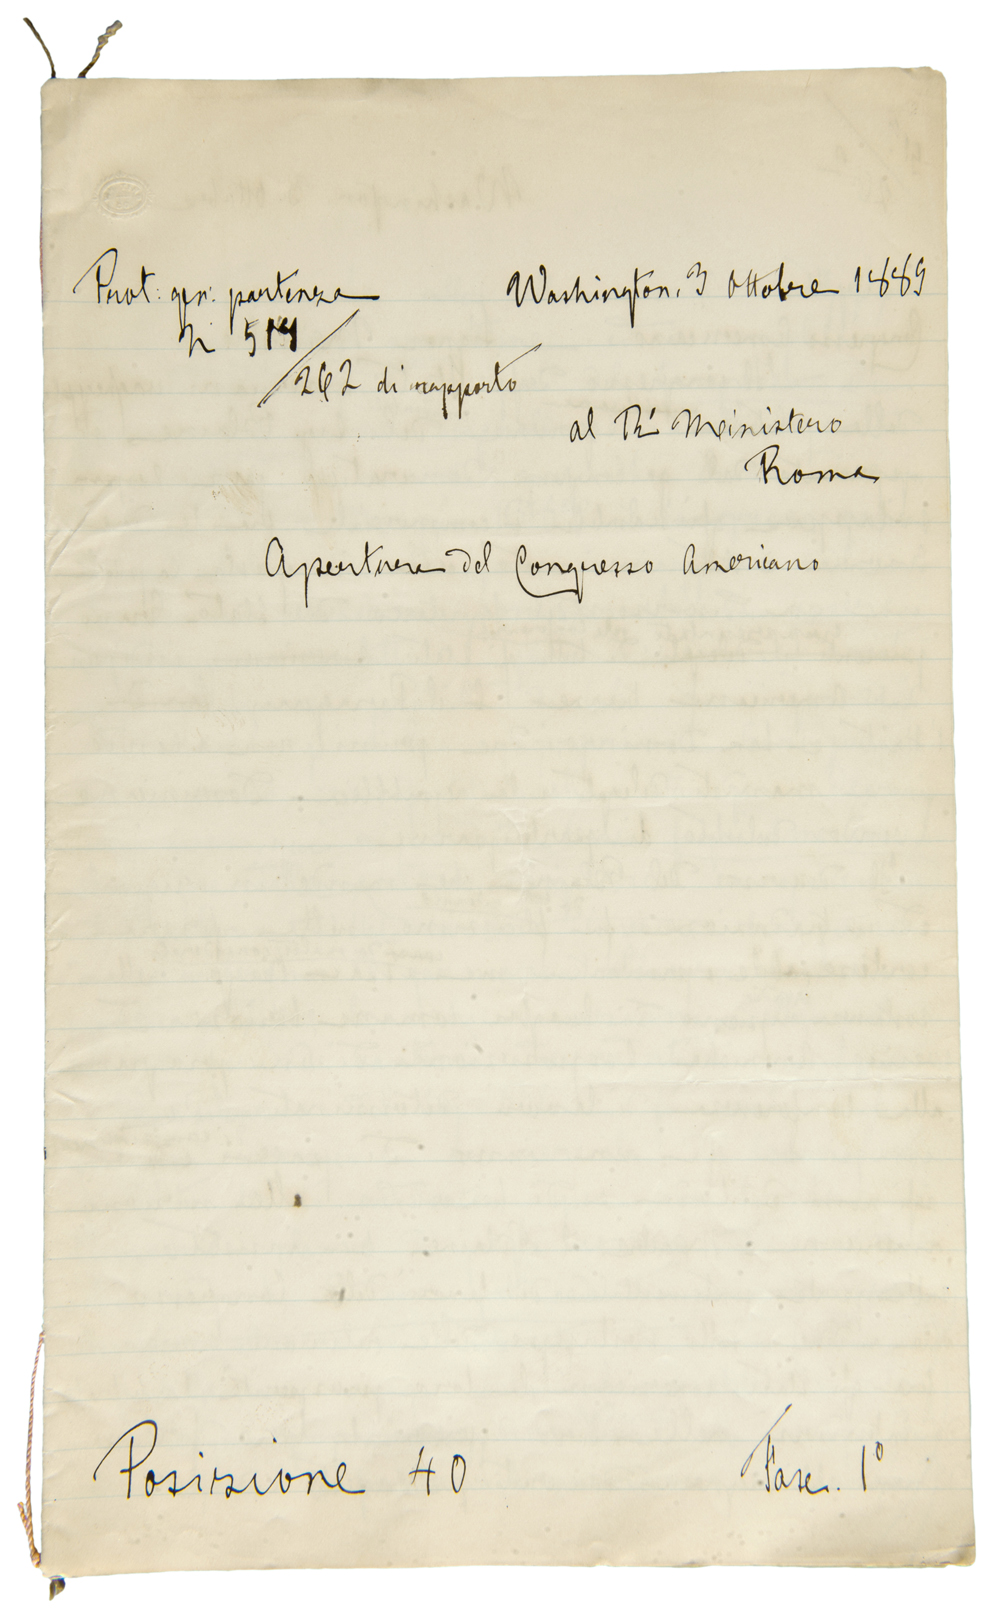 Prot: gen: partenza
Washington, 3 Ottobre 1889
N 514
/262 di rapporto
al R° Ministero
Roma
Apertura del Congresso Americano
Posizione 40
Fasc. 1°